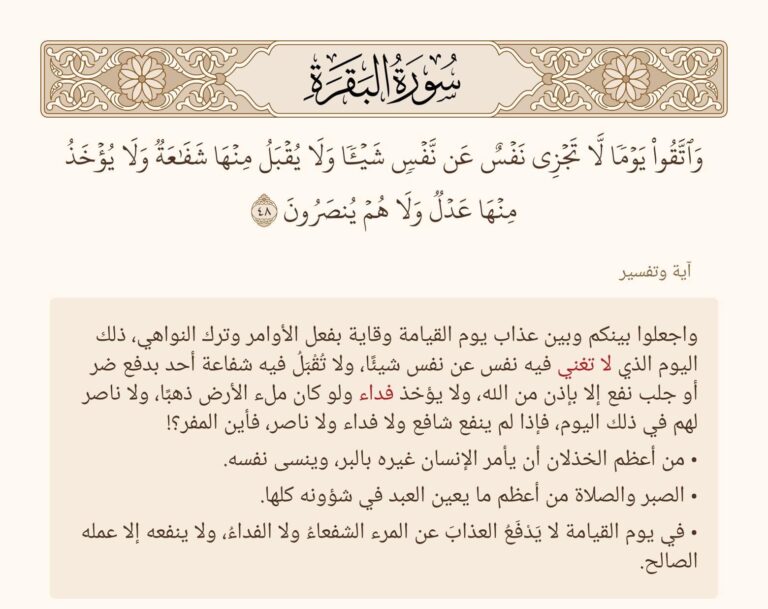 سُورَةُ البَقَرَةِ
وَٱتَّقُواْ يَوۡمٗا لَّا تَجۡزِي نَفۡسٌ عَن نَّفۡسٖ شَيۡـٔٗا وَلَا يُقۡبَلُ مِنۡهَا شَفَٰعَةٞ وَلَا يُؤۡخَذُ
مِنۡهَا عَدۡلٞ وَلَا هُمۡ يُنصَرُونَ ٤٨
آية وتفسير
واجعلوا بينكم وبين عذاب يوم القيامة وقاية بفعل الأوامر وترك النواهي، ذلك
اليوم الذي لا تغني فيه نفس عن نفس شيئًا، ولا تُقْبَلُ فيه شفاعة أحد بدفع ضر
أو جلب نفع إلا بإذن من الله، ولا يؤخذ فداء ولو كان ملء الأرض ذهبًا، ولا ناصر
لهم في ذلك اليوم، فإذا لم ينفع شافع ولا فداء ولا ناصر، فأين المفر؟!
• من أعظم الخذلان أن يأمر الإنسان غيره بالبر، وينسى نفسه.
• الصبر والصلاة من أعظم ما يعين العبد في شؤونه كلها.
• في يوم القيامة لا يَدْفَعُ العذابَ عن المرء الشفعاءُ ولا الفداءُ، ولا ينفعه إلا عمله
الصالح.